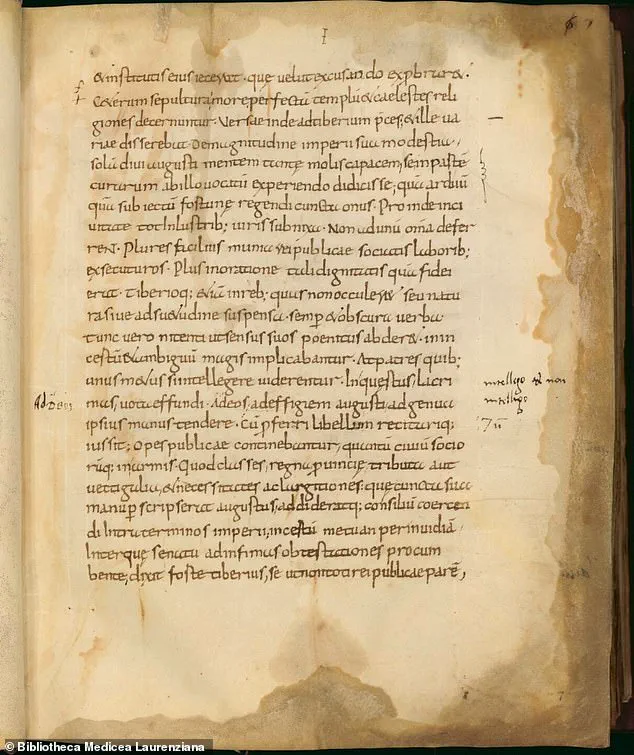 I
& institutis eius iecerat · que velut excusando exprobrar&·
C&erum sepultura more perfectũ templũ & caelestes reli
giones decernuntur · Versae inde ad tiberium p̃ces; & ille va
riae disserebat · De magnitudine imperii sua modestia ·
solã divi augusti mentem tantę molis capacem, se in partẽ
curarum ab illo vocatũ experiendo didicisse, quã arduũ
quã subiectũ fostunę regendi cuncta onus · Proinde in ci
vitate tot inlustrib; viris subnixa · Non ad unũ om̃a defer
rent · Plures facilius munia rei publicae sociatis laborib;
exsecuturos · Plus in oratione tali dignitatis quã fidei
erat · Tiberioq; &iã in reb; quas non occuler& seu natu
ra sive adsuetudine suspensa semp & obscura verba
tunc vero nitenti ut sensus suos poenitus abder& · in in
certũ & ambiguũ magis implicabantur · At patres quib;
unus metus si intellegere viderentur · In questus lacri
mas, vota effundi · Ad eos, ad effigiem augusti ad genua
ipsius manus tendere · Cũ p ferri libellum recitariq;
iussit · Opes publicae continebantur, quantũ civiũ socio
rũq; in armis · Quod classes, regna p vinciae tributa aut
vectigalia, & necessitates ac largitiones · que cuncta sua
manu p scripserat augustus, addideratq; consiliũ coercen
di intra terminos imperii, incertũ metu an per invidiã·
Interque senatu ad infimas obtestationes procum
bente; dixit foste tiberius, se ut non toti rei publicae parẽ,
Ad Deos
intellego & non
intellego
© Bibliotheca Medicea Laurenziana